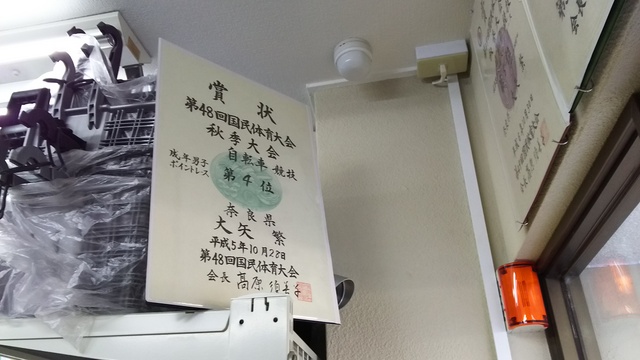 賞状
第48回国民体育大会
秋季大会
自転車競技
成年男子
ポイントレス
第4位
奈良県
大矢 繁
平成5年10月28日
第48回国民体育大会
会長 高原須美子